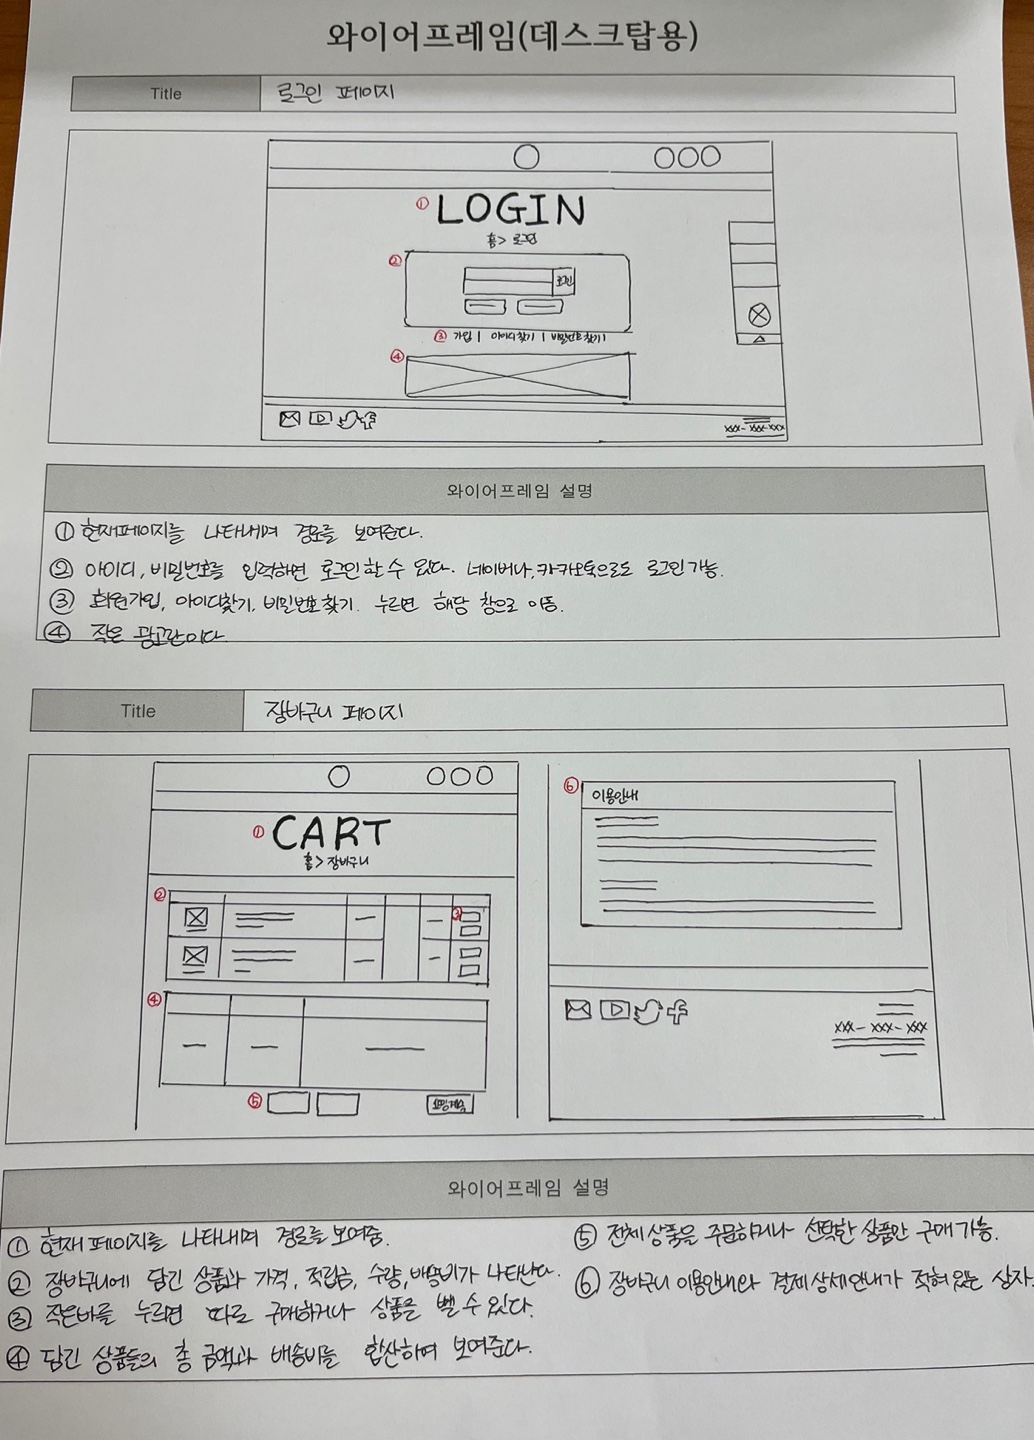 와이어프레임(데스크탑용)
Title 로그인 페이지
① LOGIN
홈 > 로그인
②
로그인
③ 가입 | 아이디찾기 | 비밀번호찾기 |
④
xxx-xxx-xxx
와이어프레임 설명
① 현재페이지를 나타내며 경로를 보여준다.
② 아이디, 비밀번호를 입력하면 로그인 할 수 있다. 네이버나, 카카오톡으로도 로그인 가능.
③ 회원가입, 아이디찾기, 비밀번호 찾기. 누르면 해당 창으로 이동.
④ 작은 광고란이다.
Title 장바구니 페이지
① CART
홈 > 장바구니
②
③
④
⑤
쇼핑계속
⑥ 이용안내
xxx-xxx-xxx
와이어프레임 설명
① 현재 페이지를 나타내며 경로를 보여줌.
② 장바구니에 담긴 상품과 가격, 적립금, 수량, 배송비가 나타난다.
③ 작은바를 누르면 따로 구매하거나 상품을 뺄 수 있다.
④ 담긴 상품들의 총 금액과 배송비를 합산하여 보여준다.
⑤ 전체 상품을 주문하거나 선택한 상품만 구매 가능.
⑥ 장바구니 이용안내와 결제 상세 안내가 적혀 있는 상자.